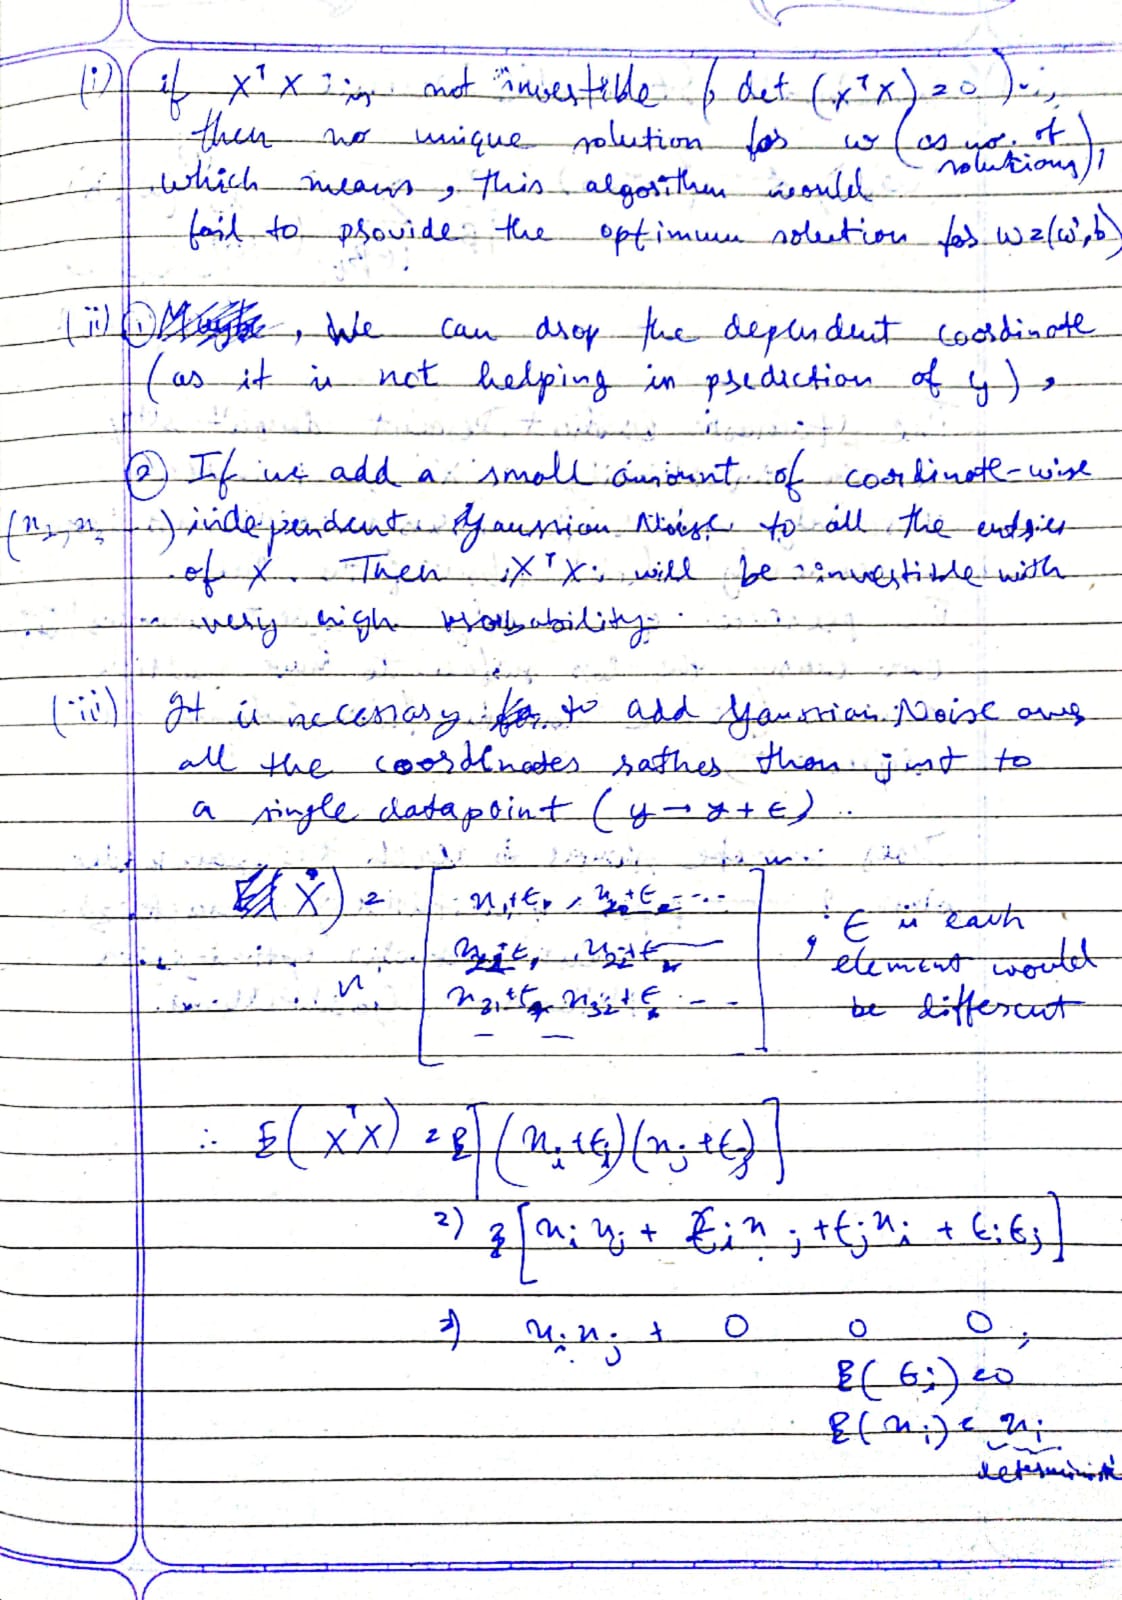 (i) if XᵀX is not invertible (, det (XᵀX) = 0 )
then no unique solution for w (∞ no. of solutions),
which means, this algorithm would
fail to provide the optimum solution for W = (w', b)
(ii) ① , We can drop the dependent coordinate
(as it is not helping in prediction of y),
② If we add a small amount of coordinate-wise
independent Gaussian Noise to all the entries
of X. Then XᵀX will be invertible with
very high probability.
(iii) It is necessary to add Gaussian Noise over
all the coordinates rather than just to
a single datapoint (y → y + ε)
(X) = [ x₁+ε₁, + ε ...
; ε in each
element would
be different
∴ E(XᵀX) = E[(xᵢ+εᵢ)(xⱼ+εⱼ)]
=) E[xᵢxⱼ + εᵢxⱼ + εⱼxᵢ + εᵢεⱼ]
=) xᵢxⱼ + 0 0 0 ,
E(εᵢ) = 0
E(xᵢ) = xᵢ